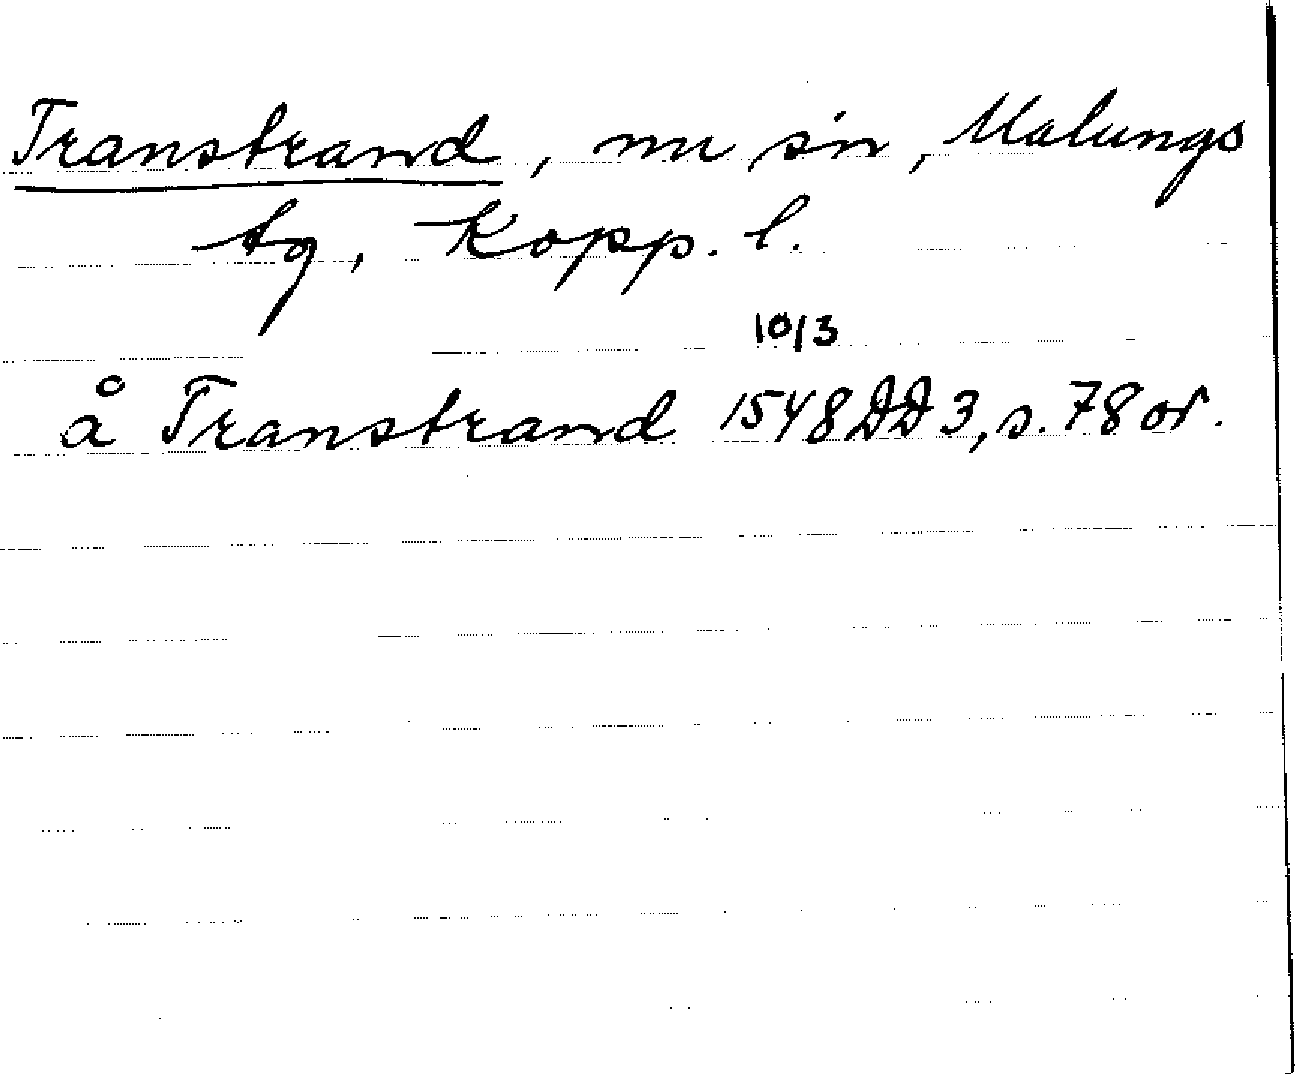 Transtrand, nu sn, Malungs
tg, Kopp. l.
10/3
å Transtrand 1548 DD 3, s. 78 or.